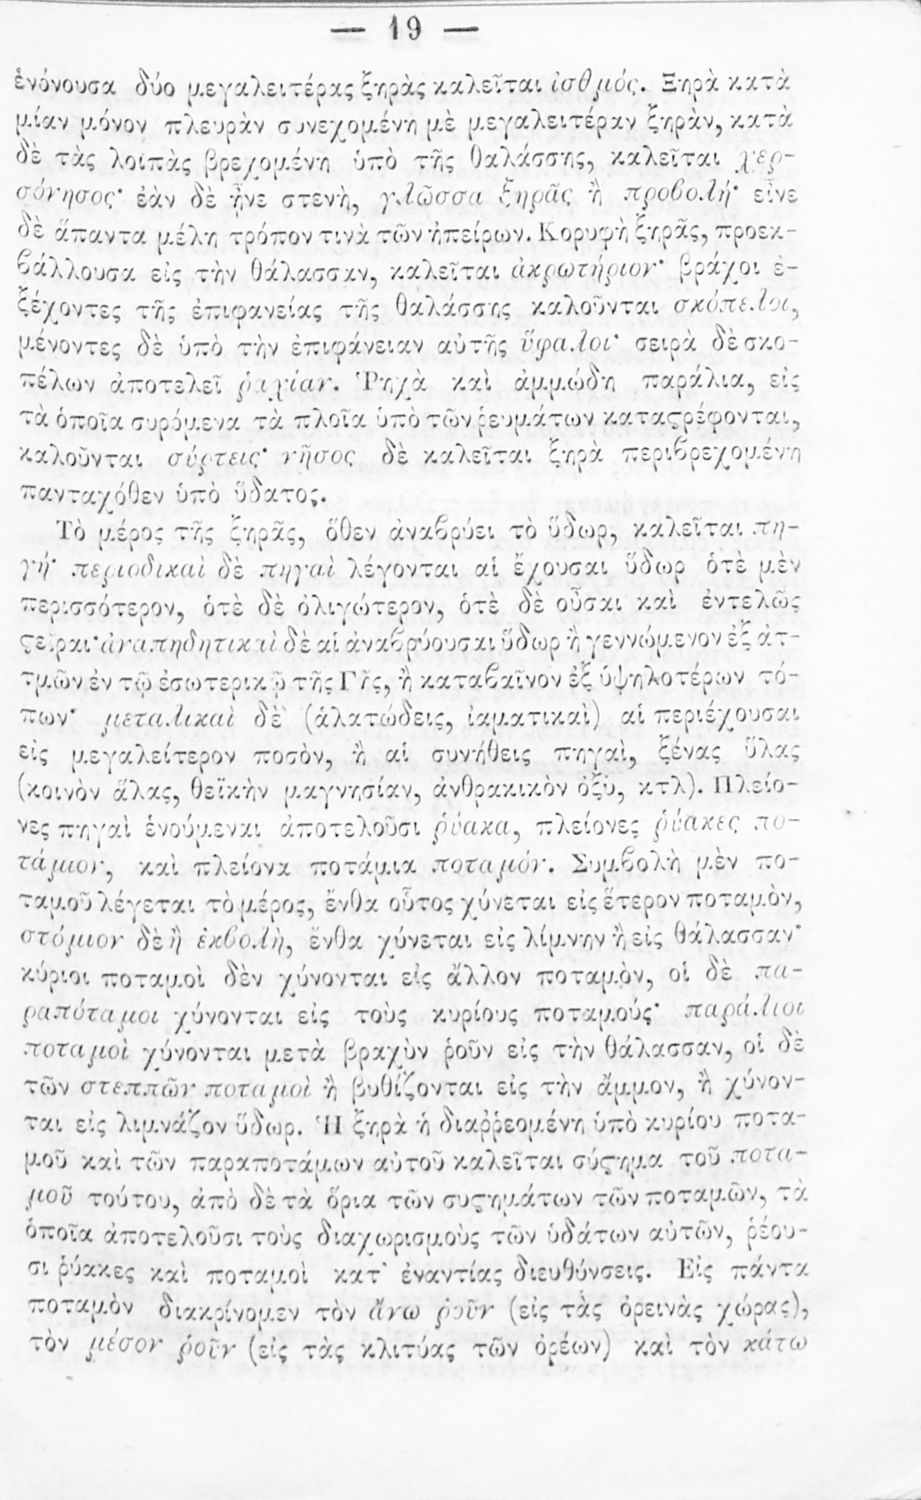 — 19 —
ἑνόνουσα δύο μεγαλειτέρας ξηρὰς καλεῖται ἰσθμός. Ξηρὰ κατὰ
μίαν μόνον πλευρὰν συνεχομένη μὲ μεγαλειτέραν ξηρὰν, κατὰ
δὲ τὰς λοιπὰς βρεχομένη ὑπὸ τῆς θαλάσσης, καλεῖται χερ-
σόνησος· ἐὰν δὲ ᾖνε στενὴ, γλῶσσα ξηρᾶς ἢ προβολή· εἶνε
δὲ ἅπαντα μέλη τρόπον τινὰ τῶν ἠπείρων. Κορυφὴ ξηρᾶς, προεκ-
βάλλουσα εἰς τὴν θάλασσαν, καλεῖται ἀκρωτήριον· βράχοι ἐ-
ξέχοντες τῆς ἐπιφανείας τῆς θαλάσσης καλοῦνται σκόπελοι,
μένοντες δὲ ὑπὸ τὴν ἐπιφάνειαν αὐτῆς ὕφαλοι· σειρὰ δὲ σκο-
πέλων ἀποτελεῖ ῥαχίαν. Ῥηχὰ καὶ ἀμμώδη παράλια, εἰς
τὰ ὁποῖα συρόμενα τὰ πλοῖα ὑπὸ τῶν ῥευμάτων καταϛρέφονται,
καλοῦνται σύρτεις· νῆσος δὲ καλεῖται ξηρὰ περιβρεχομένη
πανταχόθεν ὑπὸ ὕδατος.
Τὸ μέρος τῆς ξηρᾶς, ὅθεν ἀναβρύει τὸ ὕδωρ, καλεῖται πη-
γή· περιοδικαὶ δὲ πηγαὶ λέγονται αἱ ἔχουσαι ὕδωρ ὁτὲ μὲν
περισσότερον, ὁτὲ δὲ ὀλιγώτερον, ὁτὲ δὲ οὖσαι καὶ ἐντελῶς
ϛεῖραι· ἀναπηδητικαὶ δὲ αἱ ἀναβρύουσαι ὕδωρ ἢ γεννώμενον ἐξ ἀτ-
τμῶν ἐν τῷ ἐσωτερικῷ τῆς Γῆς, ἢ καταβαῖνον ἐξ ὑψηλοτέρων τό-
πων· μεταλικαὶ δὲ (ἁλατώδεις, ἰαματικαὶ) αἱ περιέχουσαι
εἰς μεγαλείτερον ποσὸν, ἢ αἱ συνήθεις πηγαὶ, ξένας ὕλας
(κοινὸν ἅλας, θεϊκὴν μαγνησίαν, ἀνθρακικὸν ὀξὺ, κτλ). Πλείο-
νες πηγαὶ ἑνούμεναι ἀποτελοῦσι ῥύακα, πλείονες ῥύακες πο-
τάμιον, καὶ πλείονα ποτάμια ποταμόν. Συμβολὴ μὲν πο-
ταμοῦ λέγεται τὸ μέρος, ἔνθα οὗτος χύνεται εἰς ἕτερον ποταμὸν,
στόμιον δὲ ἢ ἐκβολὴ, ἔνθα χύνεται εἰς λίμνην ἢ εἰς θάλασσαν·
κύριοι ποταμοὶ δὲν χύνονται εἰς ἄλλον ποταμὸν, οἱ δὲ πα-
ραπόταμοι χύνονται εἰς τοὺς κυρίους ποταμούς· παράλιοι
ποταμοὶ χύνονται μετὰ βραχὺν ῥοῦν εἰς τὴν θάλασσαν, οἱ δὲ
τῶν στεππῶν ποταμοὶ ἢ βυθίζονται εἰς τὴν ἄμμον, ἢ χύνον-
ται εἰς λιμνάζον ὕδωρ. Ἡ ξηρὰ ἡ διαῤῥεομένη ὑπὸ κυρίου ποτα-
μοῦ καὶ τῶν παραποτάμων αὐτοῦ καλεῖται σύϛημα τοῦ ποτα-
μοῦ τούτου, ἀπὸ δὲ τὰ ὅρια τῶν συϛημάτων τῶν ποταμῶν, τὰ
ὁποῖα ἀποτελοῦσι τοὺς διαχωρισμοὺς τῶν ὑδάτων αὐτῶν, ῥέου-
σι ῥύακες καὶ ποταμοὶ κατ᾽ ἐναντίας διευθύνσεις. Εἰς πάντα
ποταμὸν διακρίνομεν τὸν ἄνω ῥοῦν (εἰς τὰς ὀρεινὰς χώρας),
τὸν μέσον ῥοῦν (εἰς τὰς κλιτύας τῶν ὀρέων) καὶ τὸν κάτω